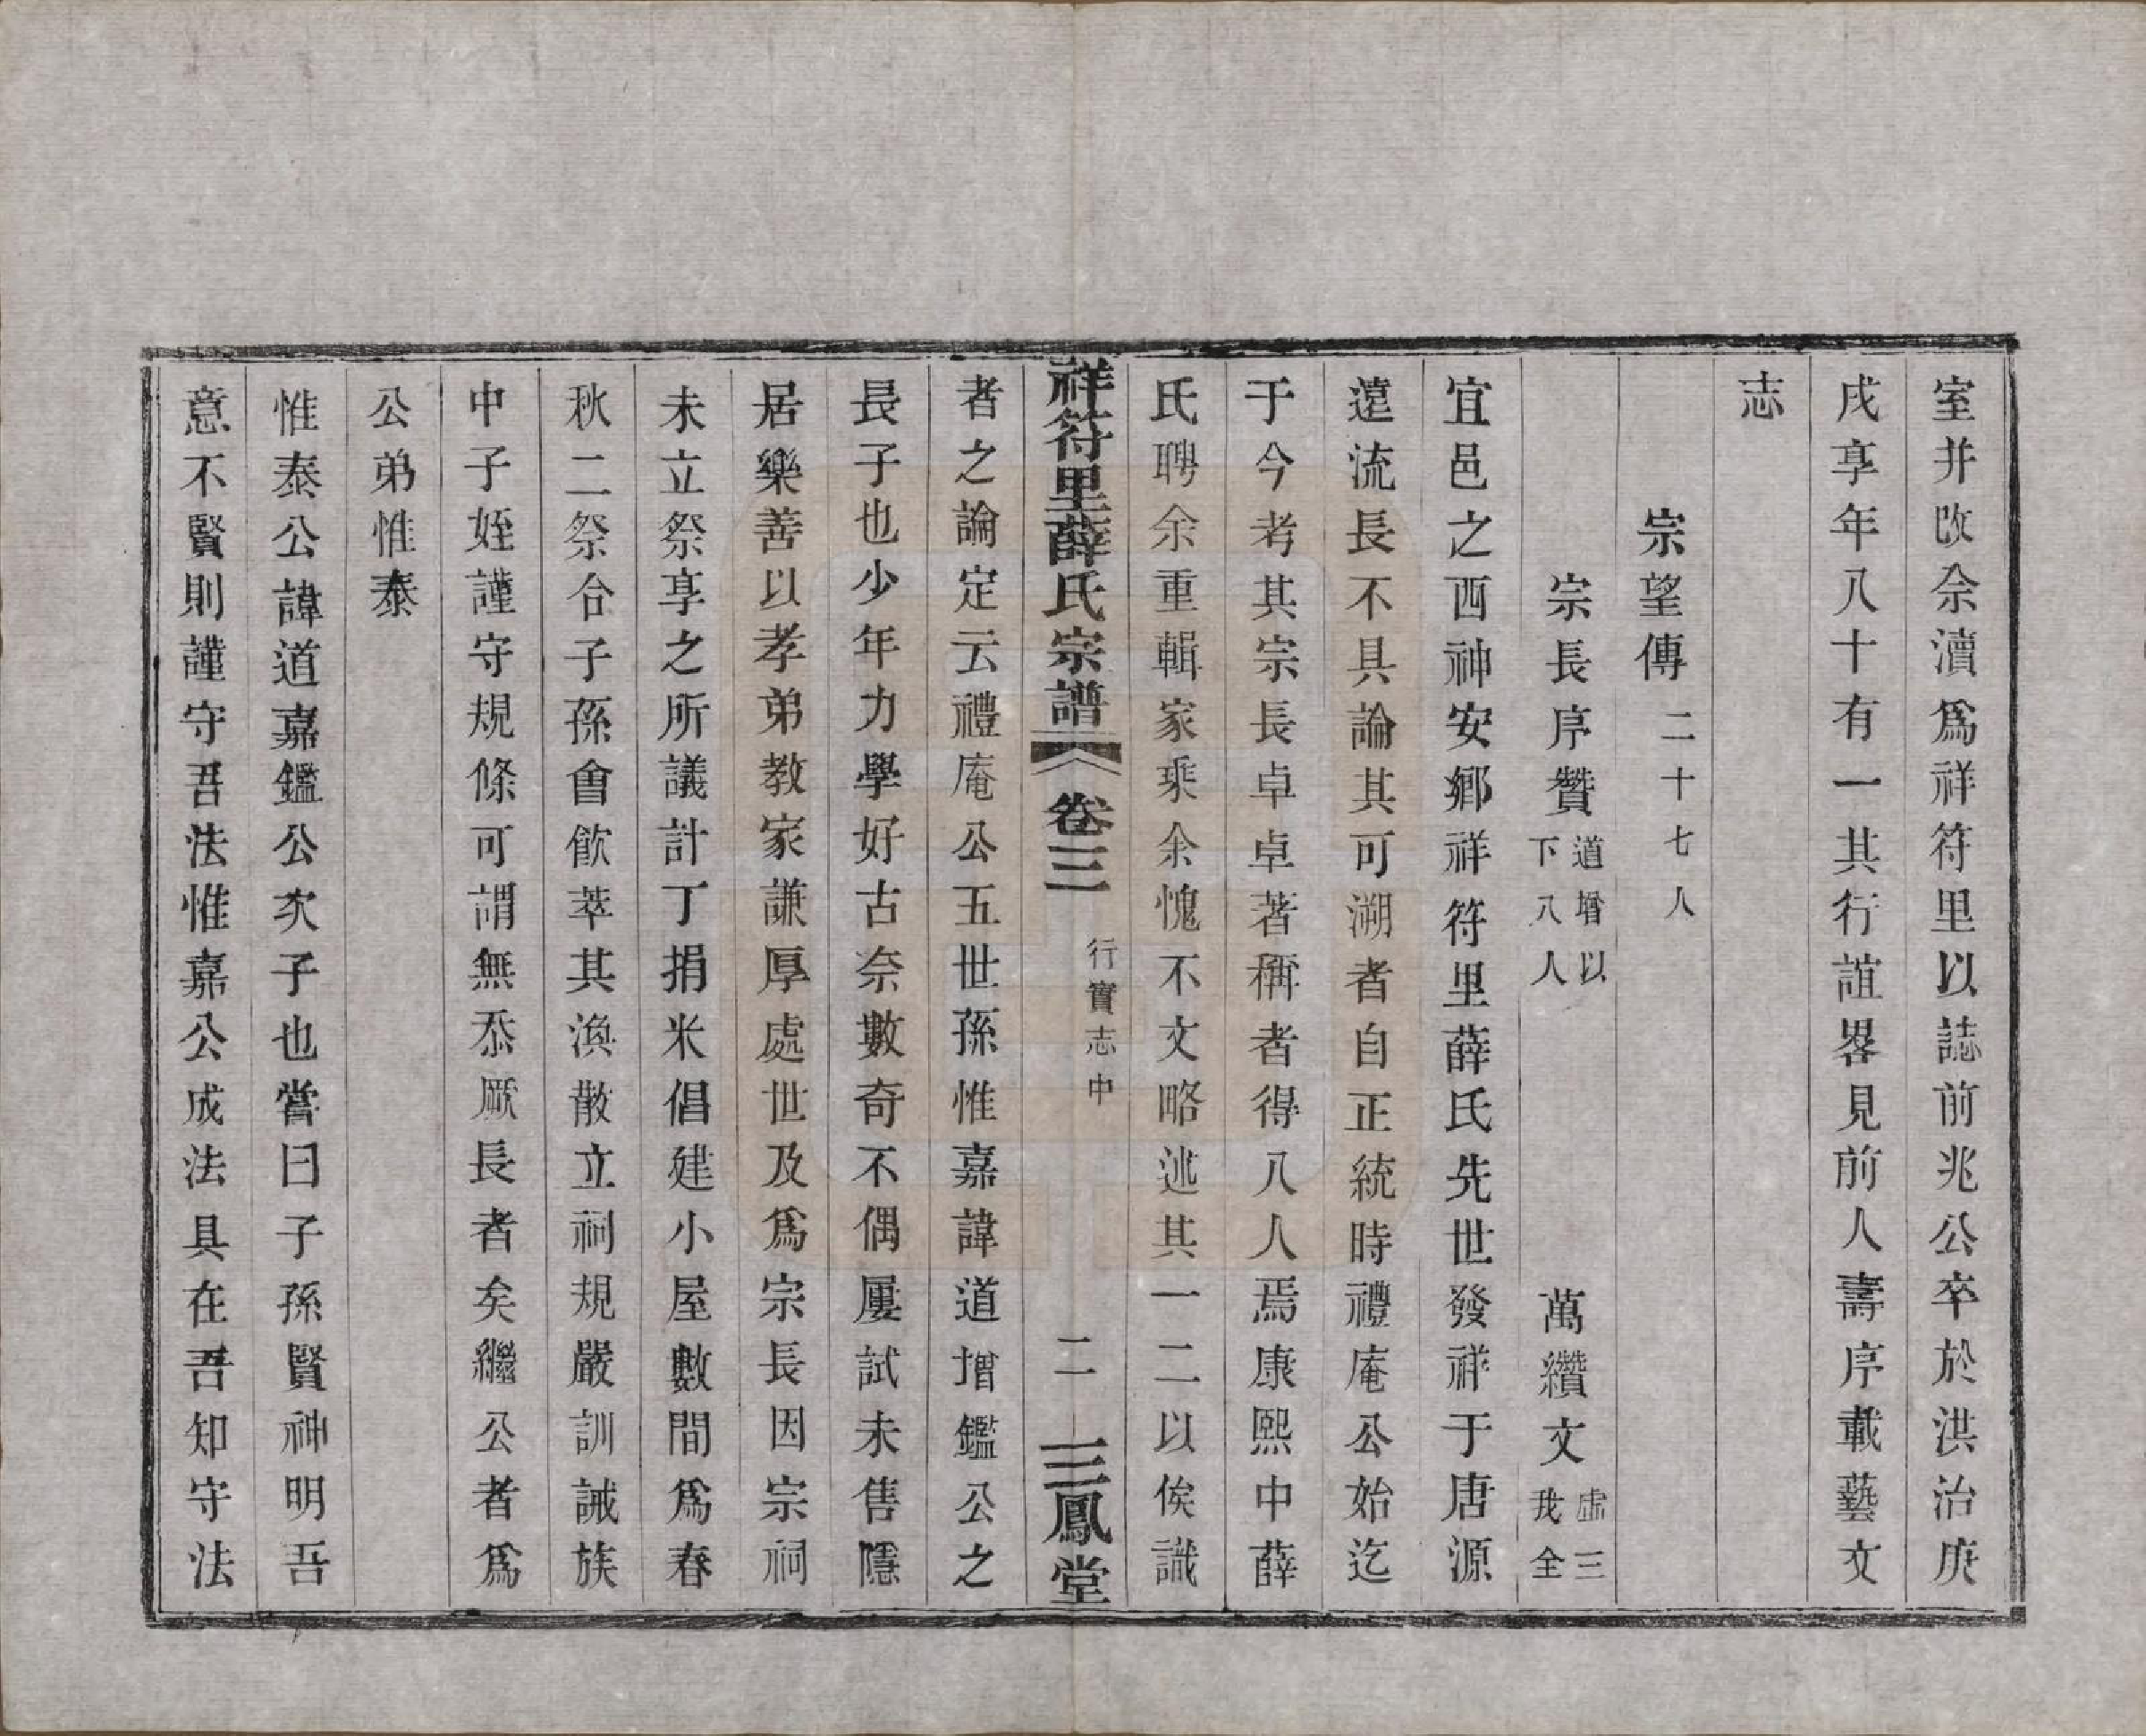 室并改佘瀆爲祥符里以誌前兆公卒於洪治庚
戌享年八十有一其行誼畧見前人壽序載藝文
志
宗望傳二十七人
宗長序贊道增以下八人 萬纘文虛三我全
宜邑之西神安鄉祥符里薛氏先世發祥于唐源
遠流長不具論其可溯者自正統時禮庵公始迄
于今考其宗長卓卓著稱者得八人焉康熙中薛
氏聘余重輯家乘余愧不文略述其一二以俟識
祥符里薛氏宗譜 卷三 行實志中 二 三鳳堂
者之論定云禮庵公五世孫惟嘉諱道增鑑公之
長子也少年力學好古奈數奇不偶屢試未售隱
居樂善以孝弟教家謙厚處世及爲宗長因宗祠
未立祭享之所議計丁捐米倡建小屋數間爲春
秋二祭合子孫會飲萃其渙散立祠規嚴訓誡族
中子姪謹守規條可謂無忝厥長者矣繼公者爲
公弟惟泰
惟泰公諱道嘉鑑公次子也嘗曰子孫賢神明吾
意不賢則謹守吾法惟嘉公成法具在吾知守法